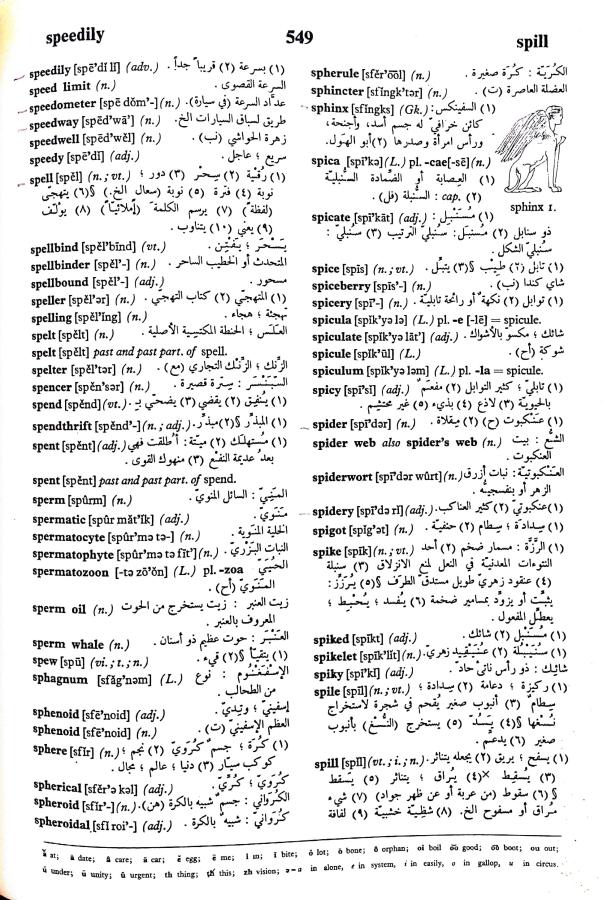 speedily 549 spill
speedily [spē'dĭ lĭ] (adv.) (١) بسرعة (٢) قريباً جداً.
speed limit (n.) السرعة القصوى.
speedometer [spē dŏm'-] (n.) عدّاد السرعة (في سيارة).
speedway [spēd'wā'] (n.) طريق لسباق السيارات الخ.
speedwell [spēd'wĕl] (n.) زهرة الحواشي (نب).
speedy [spē'dĭ] (adj.) سريع ؛ عاجل.
spell [spĕl] (n.; vt.) (١) رُقْيَة (٢) سِحْر (٣) دور ؛
نوبة (٤) فترة (٥) نوبة (سعال الخ.) §(٦) يتهجّى
(لفظةً) (٧) يرسم الكلمة (إملائيّاً) (٨) يؤلّف
(٩) يعني (١٠) يتناوب.
spellbind [spĕl'bīnd] (vt.) يَسْحَر ؛ يَفْتِن.
spellbinder [spĕl'-] (n.) المتحدث أو الخطيب الساحر.
spellbound [spĕl'-] (adj.) مسحور.
speller [spĕl'ər] (n.) (١) المتهجّي (٢) كتاب التهجّي.
spelling [spĕl'ĭng] (n.) تهجئة ؛ هجاء.
spelt [spĕlt] (n.) العَلَس ؛ الحنطة المكتسية الأصلية.
spelt [spĕlt] past and past part. of spell.
spelter [spĕl'tər] (n.) الزَّنك ؛ الزنك التجاري (مع).
spencer [spĕn'sər] (n.) السَّبَنْسَر : سترة قصيرة.
spend [spĕnd] (vt.) (١) يُنفِق (٢) يقضي (٣) يضحّي بـ.
spendthrift [spĕnd'-] (n.; adj.) (١) المبذِّر §(٢) مبذِّر.
spent [spĕnt] (adj.) (١) مُستهلَك (٢) ميتة: أُطلقت فهي
بعدُ عديمة النفع (٣) منهوك القوى.
spent [spĕnt] past and past part. of spend.
sperm [spûrm] (n.) المَنِيّ : السائل المنويّ.
spermatic [spûr măt'ĭk] (adj.) مَنَويّ.
spermatocyte [spûr'mə tə-] (n.) الخلية المنوية.
spermatophyte [spûr'mə tə fīt'] (n.) النبات البَزْريّ.
spermatozoon [-tə zō'ŏn] (L.) pl. -zoa الحُيَيّ
المَنَويّ (أح).
sperm oil (n.) زيت العنبر : زيت يستخرج من الحوت
المعروف بالعنبر.
sperm whale (n.) العَنْبَر : حوت عظيم ذو أسنان.
spew [spū] (vi.; t.; n.) (١) يتقيّأ §(٢) قيء.
sphagnum [sfăg'nəm] (L.) الإسْفَغْنُوم : نوع
من الطحالب.
sphenoid [sfē'noid] (adj.) إسفينيّ ؛ وتِديّ.
sphenoid [sfē'noid] (n.) العظم الإسفينيّ (ت).
sphere [sfĭr] (n.) (١) كُرَة ؛ جسم كُرَويّ (٢) نجم ؛
كوكب سيّار (٣) دنيا ؛ عالم ؛ مجال.
spherical [sfĕr'ə kəl] (adj.) كُرَويّ ؛ كُرِيّ.
spheroid [sfĭr'-] (n.) الكُرْوَاني : جسم شبيه بالكرة (هن).
spheroidal [sfĭ roi'-] (adj.) كُرْوانيّ : شبيه بالكرة.
spherule [sfĕr'o͞ol] (n.) الكُرَيّة : كُرَة صغيرة.
sphincter [sfĭngk'tər] (n.) العضلة العاصرة (ت).
sphinx [sfĭngks] (Gk.) (١) السفينكس:
كائن خرافي له جسم أسد، وأجنحة،
ورأس امرأة وصدرها (٢) أبو الهول.
sphinx 1.
spica [spī'kə] (L.) pl. -cae [-sē] (n.)
(١) العِصابة أو الضِّمادة السُّنبليّة
(٢) cap. : السُّنبلة (فل).
spicate [spī'kāt] (adj.) (١) مُسَنْبَل :
ذو سنابل (٢) مسنبَل: سنبليّ الترتيب (٣) سُنبليّ :
سنبليّ الشكل.
spice [spīs] (n.; vt.) (١) تابل (٢) طِيْب §(٣) يتبِّل.
spiceberry [spīs'-] (n.) شاي كندا (نب).
spicery [spī'-] (n.) (١) توابل (٢) نكهة أو رائحة تابلية.
spicula [spĭk'yə lə] (L.) pl. -e [-lē] = spicule.
spiculate [spĭk'yə lāt'] (adj.) شائك ؛ مكسوّ بالأشواك.
spicule [spĭk'ūl] (L.) شوكة (أح).
spiculum [spĭk'yə ləm] (L.) pl. -la = spicule.
spicy [spī'sĭ] (adj.) (١) تابليّ ؛ كثير التوابل (٢) مفعَم
بالحيويّة (٣) لاذع (٤) بذيء (٥) غير محتشم.
spider [spī'dər] (n.) (١) عنكبوت (ح) (٢) مِقلاة.
spider web also spider's web (n.) الشُّعّ : بيت
العنكبوت.
spiderwort [spī'dər wûrt] (n.) العنكبوتيّة: نبات أزرق
الزهر أو بنفسجيّه.
spidery [spī'də rĭ] (adj.) (١) عنكبوتيّ (٢) كثير العناكب.
spigot [spĭg'ət] (n.) (١) سِدادة ؛ سِطام (٢) حنفيّة.
spike [spīk] (n.; vt.) (١) الرَّزَّة : مسمار ضخم (٢) أحد
النتوءات المعدنيّة في النعل لمنع الانزلاق (٣) سنبلة
(٤) عنقود زهريّ طويل مستدقّ الطرف §(٥) يُرَزِّز:
يثبِّت أو يزوِّد بمسامير ضخمة (٦) يُفسد ؛ يُحْبِط ؛
يعطِّل المفعول.
spiked [spīkt] (adj.) (١) مُسَنْبَل (٢) شائك.
spikelet [spīk'lĭt] (n.) (١) سُنَيْبِلَة (٢) عُنَيْقِيد زهريّ.
spiky [spī'kĭ] (adj.) شائك : ذو رأس ناتىء حادّ.
spile [spīl] (n.; vt.) (١) ركيزة ؛ دعامة (٢) سِدادة ؛
سِطام (٣) أنبوب صغير يُقحَم في شجرة لاستخراج
نُسْغها §(٤) يَسُدّ (٥) يستخرج (النُّسْغ) بأنبوب
صغير (٦) يدعم.
spill [spĭl] (vt.; i.; n.) (١) يسفح ؛ يريق (٢) يجعله يتناثر
(٣) يُسْقِط ×(٤) يُراق ؛ يتناثر (٥) يَسقط
§(٦) سقوط (من عربة أو عن ظهر جواد) (٧) شيء
مُراق أو مسفوح الخ. (٨) شظيّة خشبيّة (٩) لفافة
ă at; ā date; â care; ä car; ĕ egg; ē me; ĭ in; ī bite; ŏ lot; ō bone; ô orphan; oi boil o͝o good; o͞o boot; ou out;
ŭ under; ū unity; û urgent; th thing; t͟h this; zh vision; ə = a in alone, e in system, i in easily, o in gallop, u in circus.